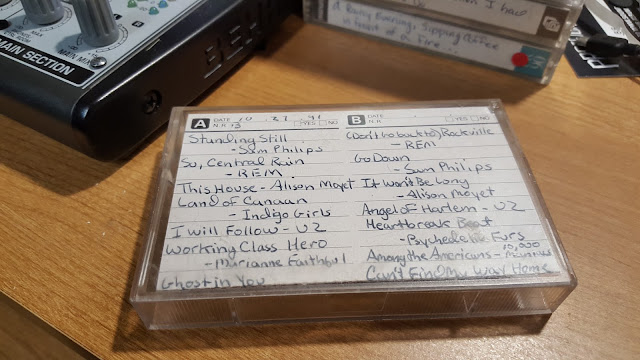 I have
A Rainy Evening, Sipping Coffee
in front of a Fire.
MAIN MIX
MAIN SECTION
A DATE 10 . 27 . 91 YES NO
N.R.
Standing Still
- Sam Philips
So, Central Rain
- REM
This House - Alison Moyet
Land of Canaan
- Indigo Girls
I Will Follow - U2
Working Class Hero
- Marianne Faithful
Ghost in You
B DATE YES NO
N.R.
(Don't Go back to) Rockville
- REM
Go Down
- Sam Philips
It Won't Be Long
- Alison Moyet
Angel of Harlem - U2
Heartbreak Beat
- Psychedelic Furs
Among the Americans - 10,000 Maniacs
Can't Find My Way Home